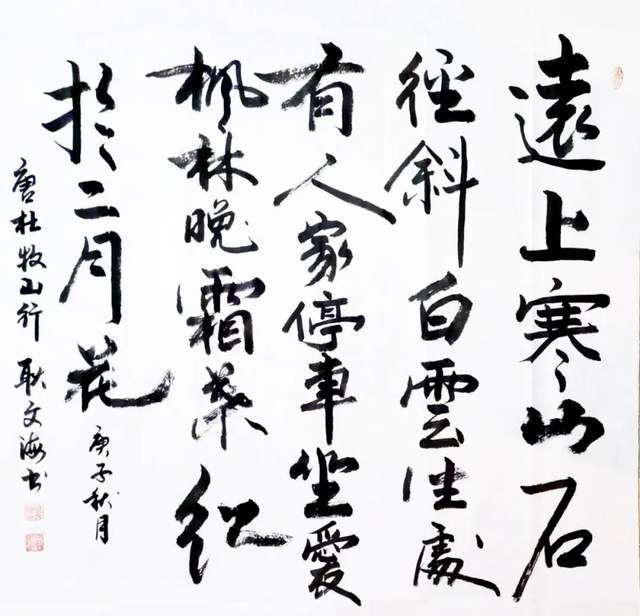 遠上寒山石
徑斜白雲生處
有人家停車坐愛
楓林晚霜葉紅
於二月花
庚子秋月
唐杜牧山行 耿文海书